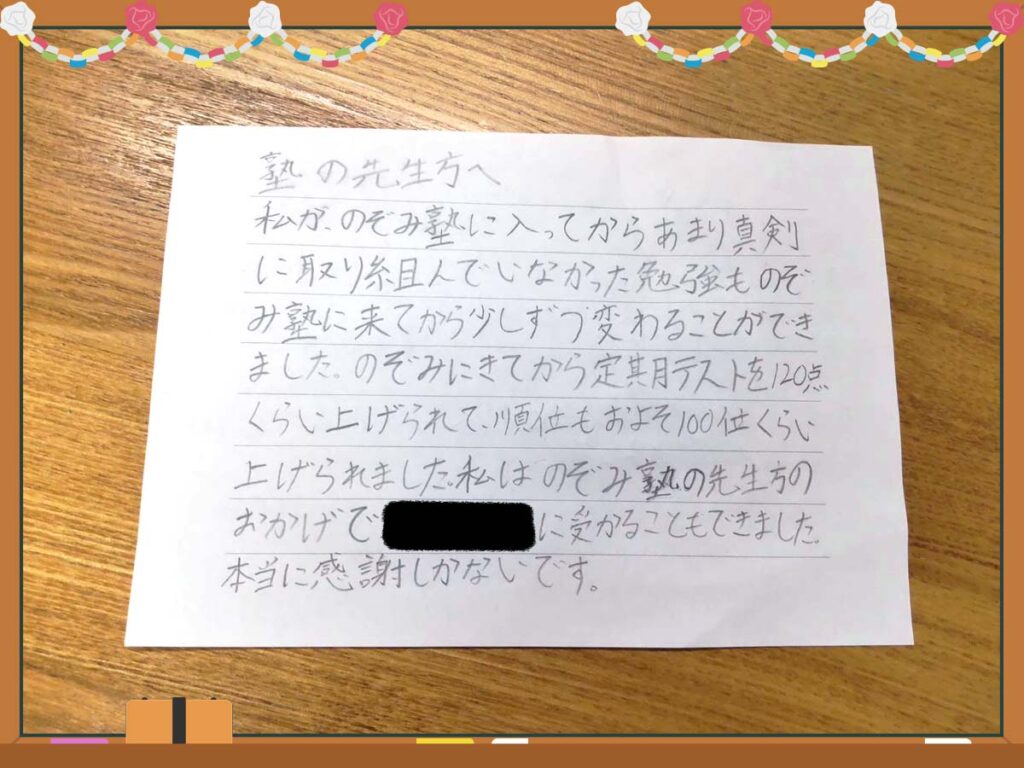 塾の先生方へ
私が、のぞみ塾に入ってからあまり真剣
に取り組んでいなかった勉強ものぞ
み塾に来てから少しずつ変わることができ
ました。のぞみにきてから定期テストを120点
くらい上げられて、順位もおよそ100位くらい
上げられました。私はのぞみ塾の先生方の
おかげで に受かることもできました。
本当に感謝しかないです。